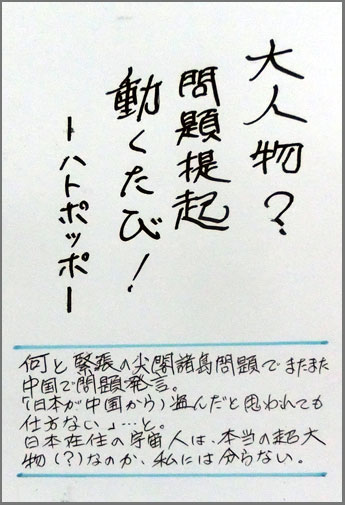 大人物？
問題提起
動くたび！
ーハトポッポー
何と緊張の尖閣諸島問題でまたまた
中国で問題発言。
「（日本が中国から）盗んだと思われても
仕方ない」…と。
日本在住の宇宙人は、本当の超大
物（？）なのか、私には分らない。